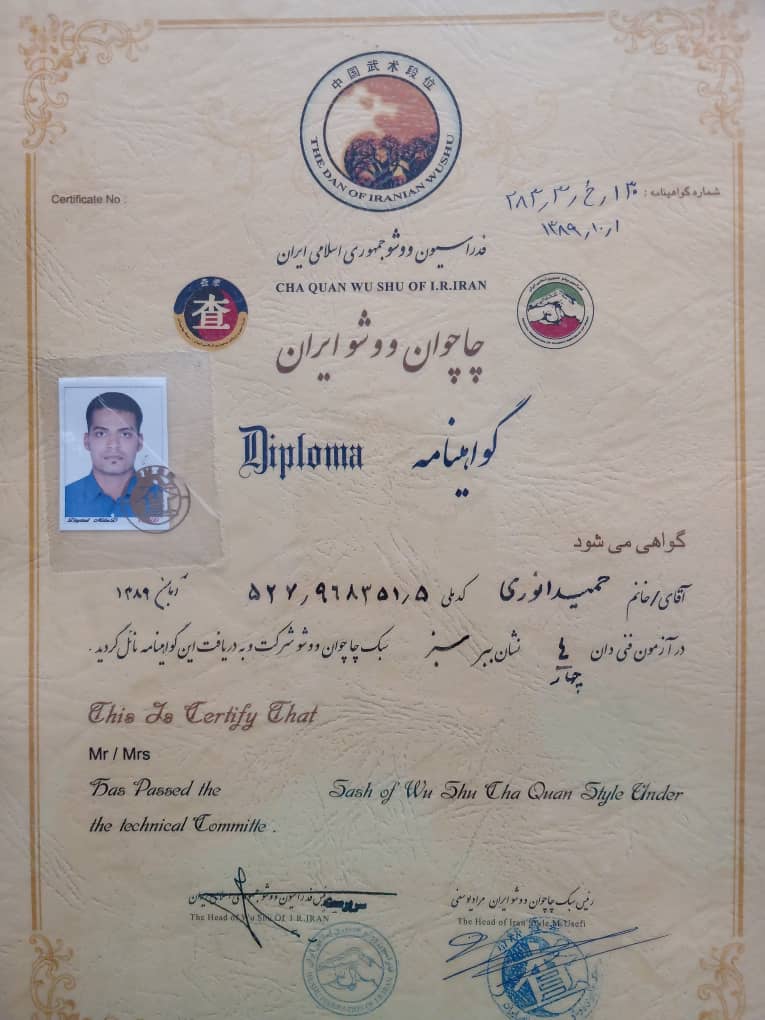 中国武术段位
THE DAN OF IRANIAN WUSHU
Certificate No :
شماره گواهینامه : ۱۳۰ / خ / ۲۸۳٫۳
۱۳۸۹٫۱۰٫۱
فدراسیون ووشو جمهوری اسلامی ایران
CHA QUAN WU SHU OF I.R.IRAN
查
چاچوان ووشو ایران
Diploma
گواهینامه
گواهی می شود
آقای/خانم حمید انوری کدملی ۵۲۷٫۹۶۸۳۵۱٫۵ آبان ۱۳۸۹
در آزمون فنی دان ۴ نشان ببر سبز سبک چاچوان ووشو شرکت و به دریافت این گواهینامه نائل گردید .
چهار
This Is Certify That
Mr / Mrs
Has Passed the Sash of Wu Shu Cha Quan Style Under
the technical Committe .
رئیس فدراسیون ووشو جمهوری اسلامی ایران
سرپرست
The Head of Wu Shu Of I.R.IRAN
رئیس سبک چاچوان ووشو ایران مراد یوسفی
The Head of Iran Style M.Usefi